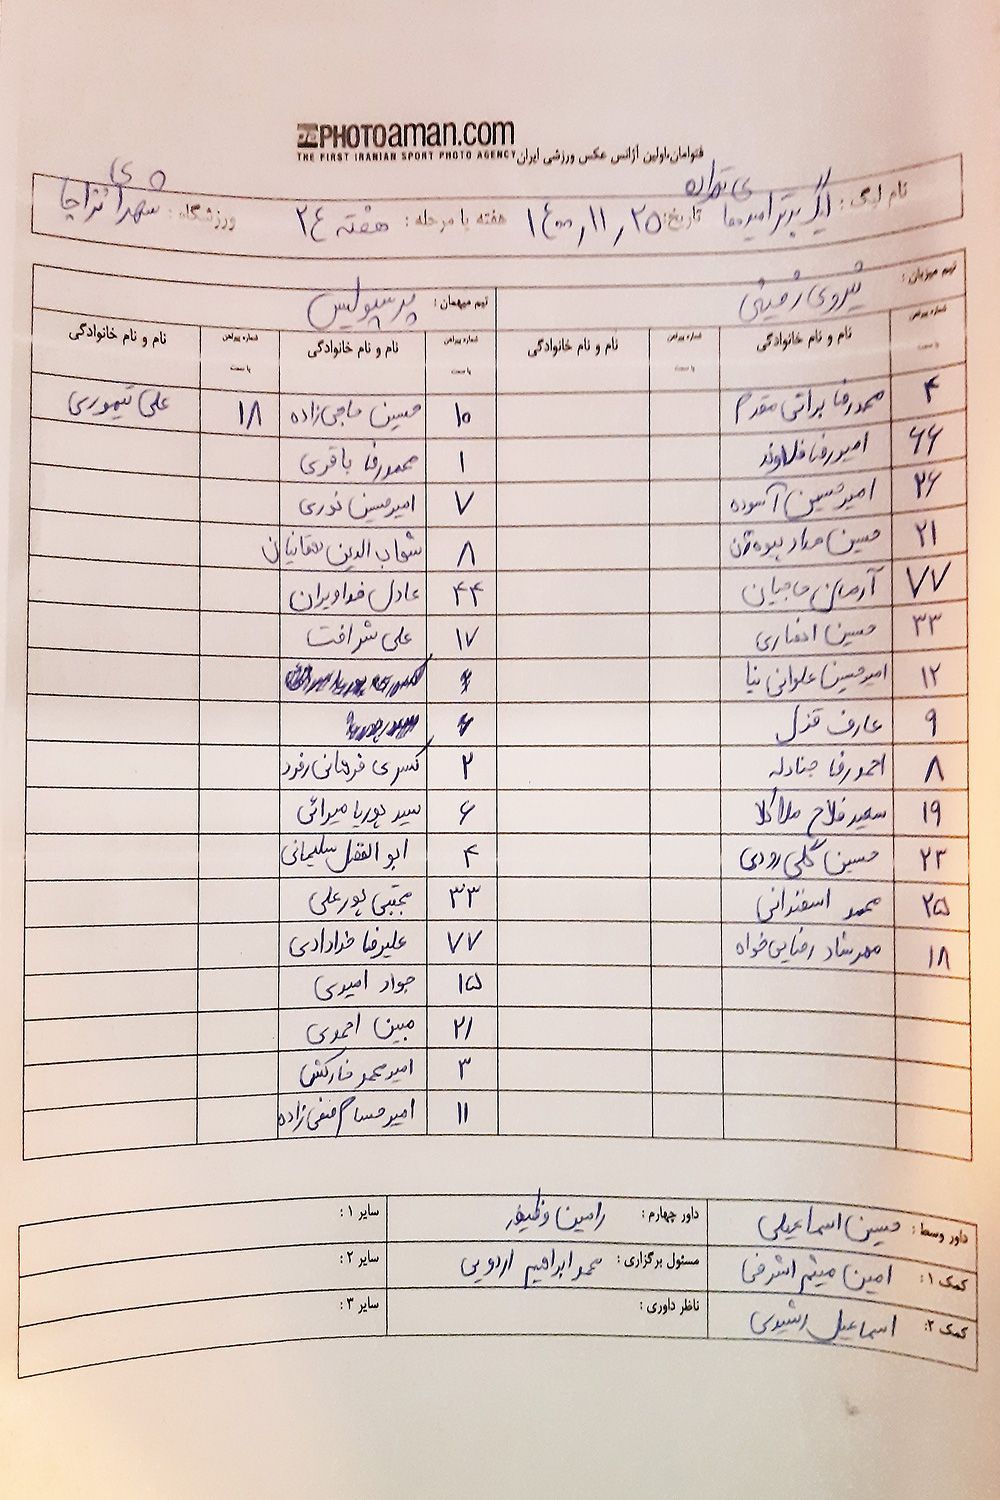 PHOTOaman.com
THE FIRST IRANIAN SPORT PHOTO AGENCY فتوامان،اولین آژانس عکس ورزشی ایران
نام لیگ: لیگ برتر امیدهای تهران تاریخ: ۱۴۰۰٫۱۱٫۲۵ هفته یا مرحله: هفته ۲۴ ورزشگاه: شهدای نزاجا
تیم میزبان: نیروی زمینی تیم میهمان: پرسپولیس
شماره پیراهن یا ست نام و نام خانوادگی شماره پیراهن یا ست نام و نام خانوادگی شماره پیراهن یا ست نام و نام خانوادگی شماره پیراهن یا ست نام و نام خانوادگی
۴ محمدرضا براتی مقدم ۱۰ حسین حاجی زاده ۱۸ علی تیموری
۶۶ امیررضا ۱ محمدرضا باقری
۲۶ امیرحسین آسوده ۷ امیرحسین نوری
۲۱ حسین ۸ شهاب الدین
۷۷ آرمان حاجیان ۴۴ عادل
۳۳ حسین ۱۷ علی شرافت
۱۲ امیرحسین علوانی نیا
۹ عارف قزل
۸ احمدرضا جنادله ۲ کسری فرهانی رفرد
۱۹ سعید فلاح ملاکلا ۶ سید پوریا میرائی
۲۳ حسین گلی رودی ۴ ابوالفضل سلیمانی
۲۵ محمد اسفندانی ۳۳ مجتبی پورعلی
۱۸ مهرشاد رضایی خواه ۷۷ علیرضا خدادادی
۱۵ جواد امیدی
۲۱ مبین احمدی
۳ امیرمحمد خارکش
۱۱ امیرحسام
داور وسط: حسین اسماعیلی داور چهارم: رامین سایر ۱:
کمک ۱: امین میثم اشرفی مسئول برگزاری: محمدابراهیم اردویی سایر ۲:
کمک ۲: اسماعیل رشیدی ناظر داوری: سایر ۳: